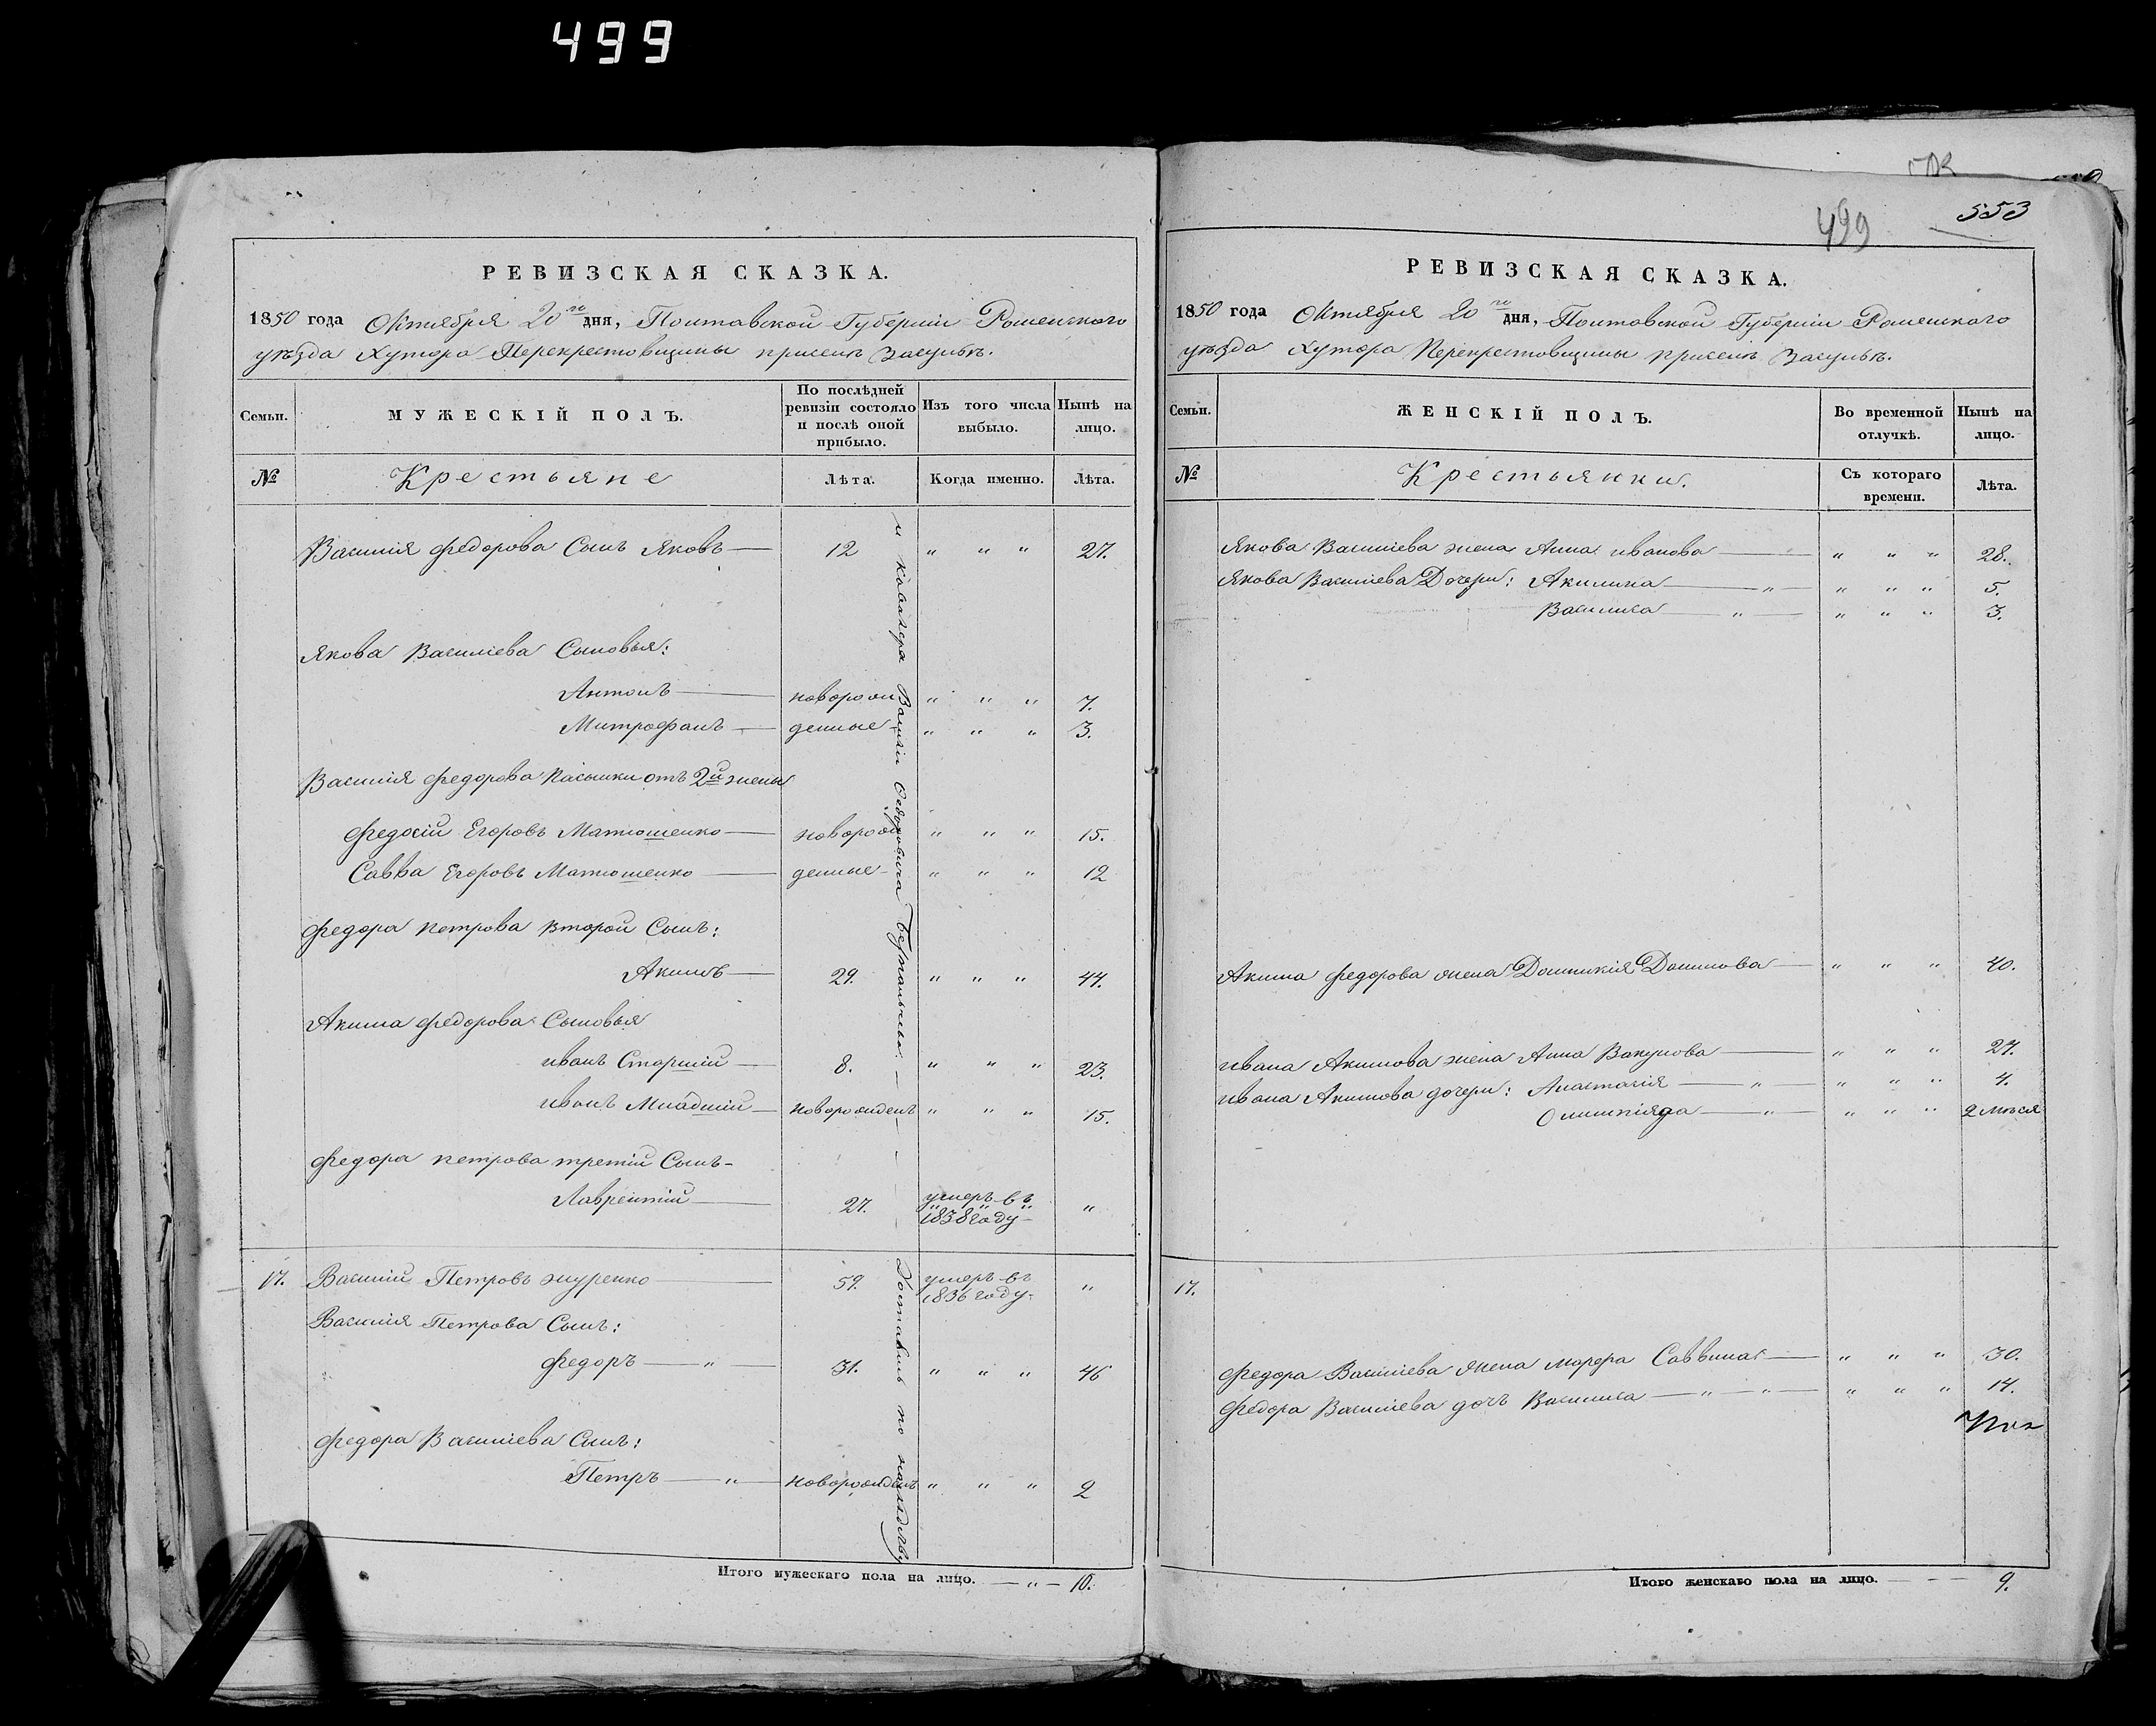 499
РЕВИЗСКАЯ СКАЗКА.
1850 года Октября 20го дня, Полтавской Губерніи Роменского
уѣзда Хутора Перекрестовщины присел. Засулье.
Семьи.
МУЖЕСКІЙ ПОЛЪ.
По послѣдней ревизіи состояло и послѣ оной прибыло.
Изъ того числа выбыло.
Нынѣ на лицо.
№
Крестьяне
Лѣта.
Когда именно.
Лѣта.
Василія Федорова Сынъ Яковъ — 12 " " " 27.
Якова Василіева Сыновья:
Антонъ — новорож " " " 7.
Митрофанъ — денные " " " 3.
Василія Федорова пасынки отъ 2й жены
Федосій Егоровъ Матюшенко — новорож " " " 15.
Савва Егоровъ Матюшенко — денные " " " 12
Федора Петрова второй Сынъ:
Акимъ — 29. " " " 44.
Акима Федорова Сыновья
Иванъ Старшій — 8. " " " 23.
Иванъ Младшій — новорожденъ " " " 15.
Федора Петрова третій Сынъ -
Лаврентій — 27. умеръ въ 1838 году - "
17. Василій Петровъ Журенко — 59. умеръ въ 1836 году - "
Василія Петрова Сынъ:
Федоръ — " — 31. " " " 46
Федора Василіева Сынъ:
Петръ — " — новорожденъ " " " 2
Итого мужескаго пола на лицо. — " — 10.
и кавалера Василія Федоровича
по
499
553
РЕВИЗСКАЯ СКАЗКА.
1850 года Октября 20го дня, Полтавской Губерніи Роменского
уѣзда Хутора Перекрестовщины присел. Засулье.
Семьи.
ЖЕНСКІЙ ПОЛЪ.
Во временной отлучкѣ.
Нынѣ на лицо.
№
Крестьянки.
Съ котораго времени.
Лѣта.
Якова Василіева жена Анна Иванова — " " " 28.
Якова Василіева Дочери: Акилина — " — " " " 5.
Василиса — " — " " " 3.
Акима Федорова жена Домникія — " " " 40.
Ивана Акимова жена Анна — " " " 27.
Ивана Акимова дочери: Анастасія — " — " " " 4.
Олимпіяда — " — " " " 2 мѣся
17.
Федора Василіева жена Саввина — " " " 30.
Федора Василіева дочь Василиса — " — " — " " " 14.
Итого женскаго пола на лицо. — 9.